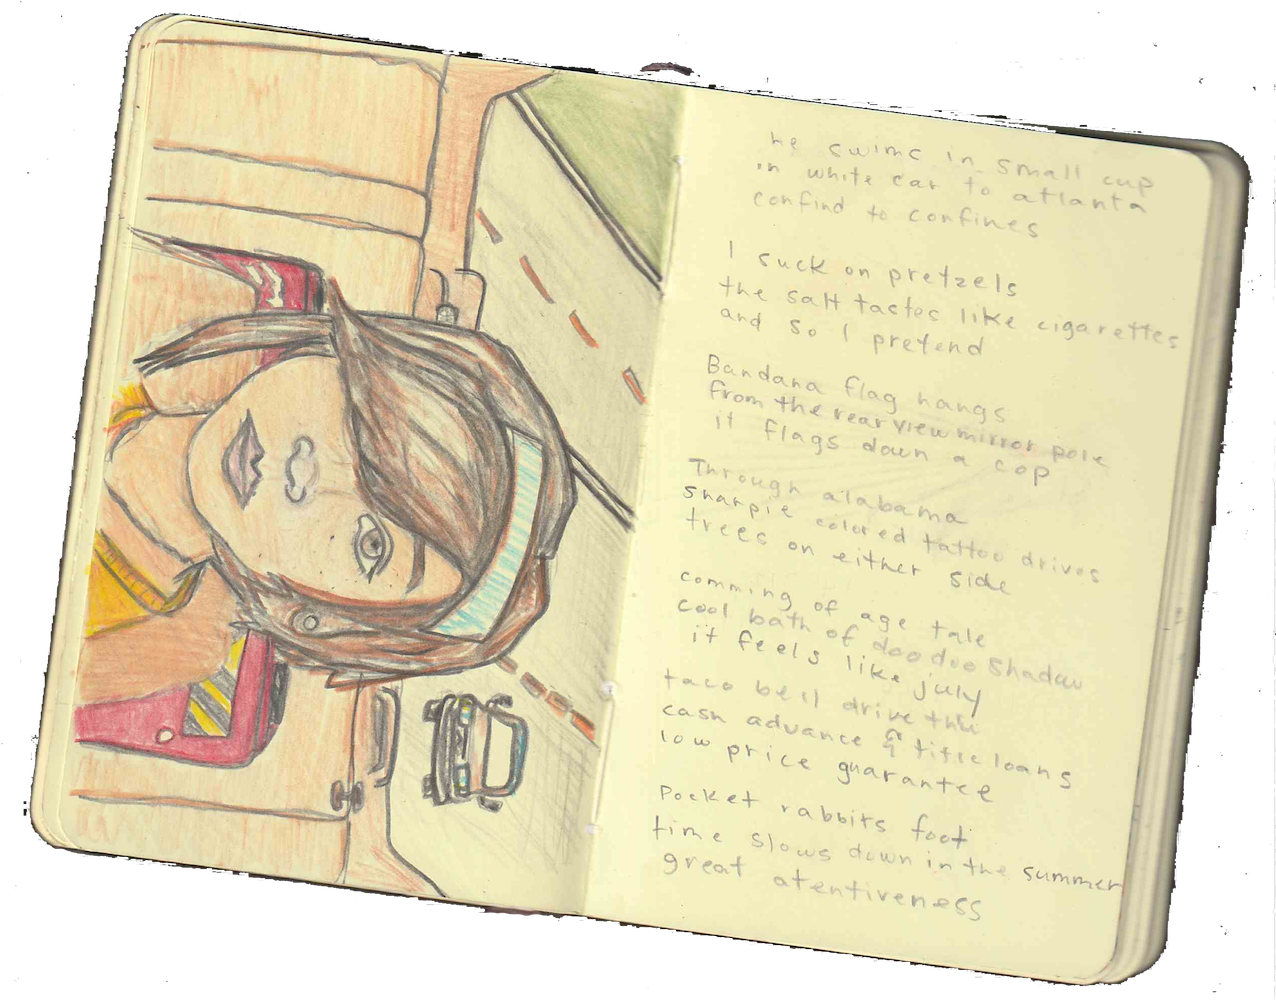 he swims in small cup
in white car to atlanta
confind to confines
I suck on pretzels
the salt tastes like cigarettes
and so I pretend
Bandana flag hangs
from the rear view mirror pole
it flags down a cop
Through alabama
sharpie colored tattoo drives
trees on either side
comming of age tale
cool bath of doo doo shadow
it feels like july
taco bell drive thru
cash advance & title loans
low price guarantee
Pocket rabbits foot
time slows down in the summer
great atentiveness